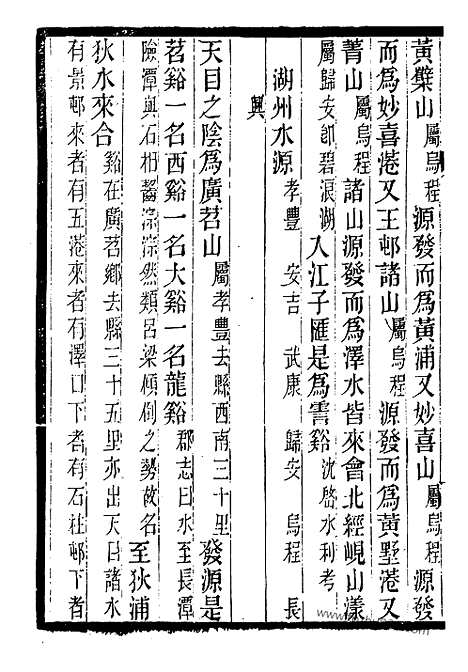 黃櫱山屬烏程源發而爲黃浦又妙喜山屬烏程源發
而爲妙喜港又王邨諸山屬烏程源發而爲黃墅港又
菁山屬烏程諸山源發而爲澤水皆來會北經峴山漾
屬歸安卽碧浪湖入江子匯是爲霅谿沈啓水利考
湖州水源孝豐 安吉 武康 歸安 烏程 長
興
天目之陰爲廣苕山屬孝豐去縣西南三十里發源是
苕谿一名西谿一名大谿一名龍谿郡志曰水至長潭
險潭與石相齧淙淙然類呂梁傾倒之勢故名至狄浦
狄水來合谿在廣苕鄉去縣三十五里亦出天目諸水
有景邨來者有五港來者有澤口下者有石社邨下者